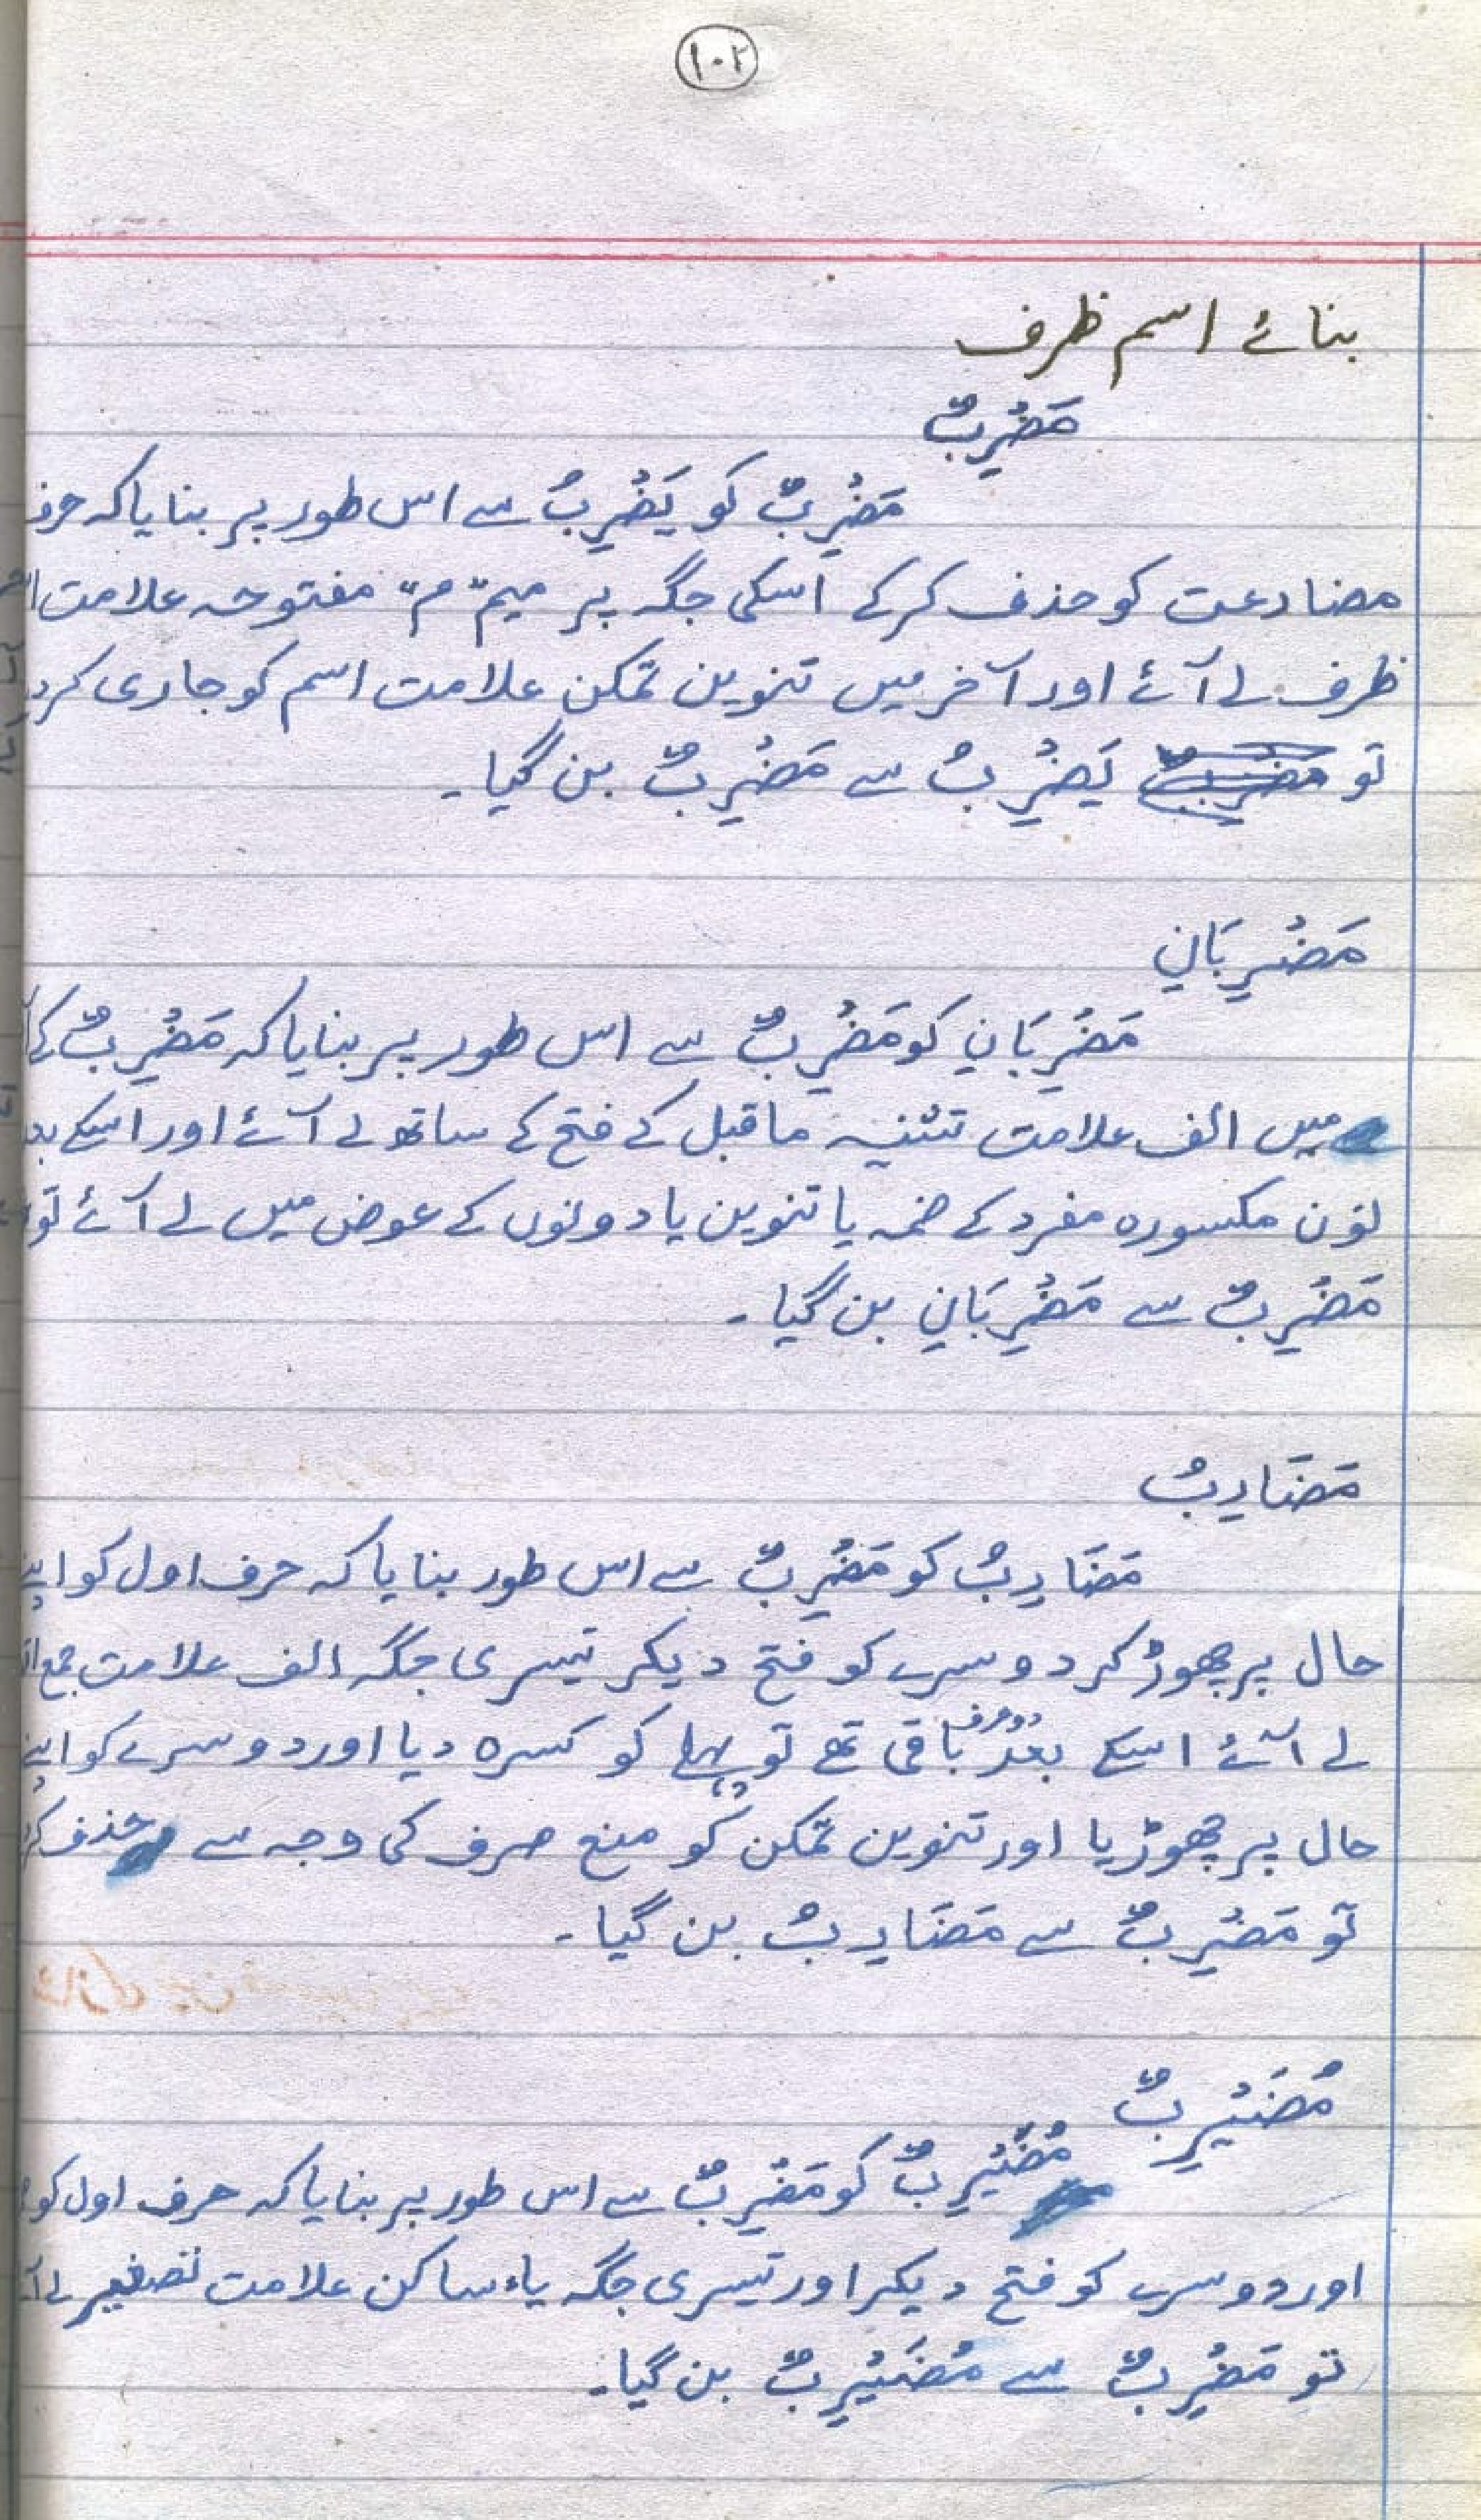 ۱۰۲
بنائے اسم ظرف
مَضْرِبٌ
مَضْرِبٌ کو یَضْرِبُ سے اس طور پر بنایا کہ حرف
مضارعت کو حذف کرکے اسکی جگہ پر میم "م" مفتوحہ علامت
ظرف لے آئے اور آخر میں تنوین تمکن علامت اسم کو جاری کردیا
تو یَضْرِبُ سے مَضْرِبٌ بن گیا۔
مَضْرِبَانِ
مَضْرِبَانِ کو مَضْرِبٌ سے اس طور پر بنایا کہ مَضْرِبٌ کے
میں الف علامت تثنیہ ماقبل کے فتح کے ساتھ لے آئے اور اسکے بعد
نون مکسورہ مفرد کے ضمہ یا تنوین یا دونوں کے عوض میں لے آئے تو
مَضْرِبٌ سے مَضْرِبَانِ بن گیا۔
مَضَارِبُ
مَضَارِبُ کو مَضْرِبٌ سے اس طور بنایا کہ حرف اول کو اپنے
حال پر چھوڑ کر دوسرے کو فتح دیکر تیسری جگہ الف علامت جمع
لے آئے اسکے بعد دو حرف باقی تھے تو پہلے کو کسرہ دیا اور دوسرے کو اپنے
حال پر چھوڑیا اور تنوین تمکن کو منع صرف کی وجہ سے حذف
تو مَضْرِبٌ سے مَضَارِبُ بن گیا۔
مُضَیْرِبٌ
مُضَیْرِبٌ کو مَضْرِبٌ سے اس طور پر بنایا کہ حرف اول کو
اور دوسرے کو فتح دیکر اور تیسری جگہ یاء ساکن علامت تصغیر لے
تو مَضْرِبٌ سے مُضَیْرِبٌ بن گیا۔